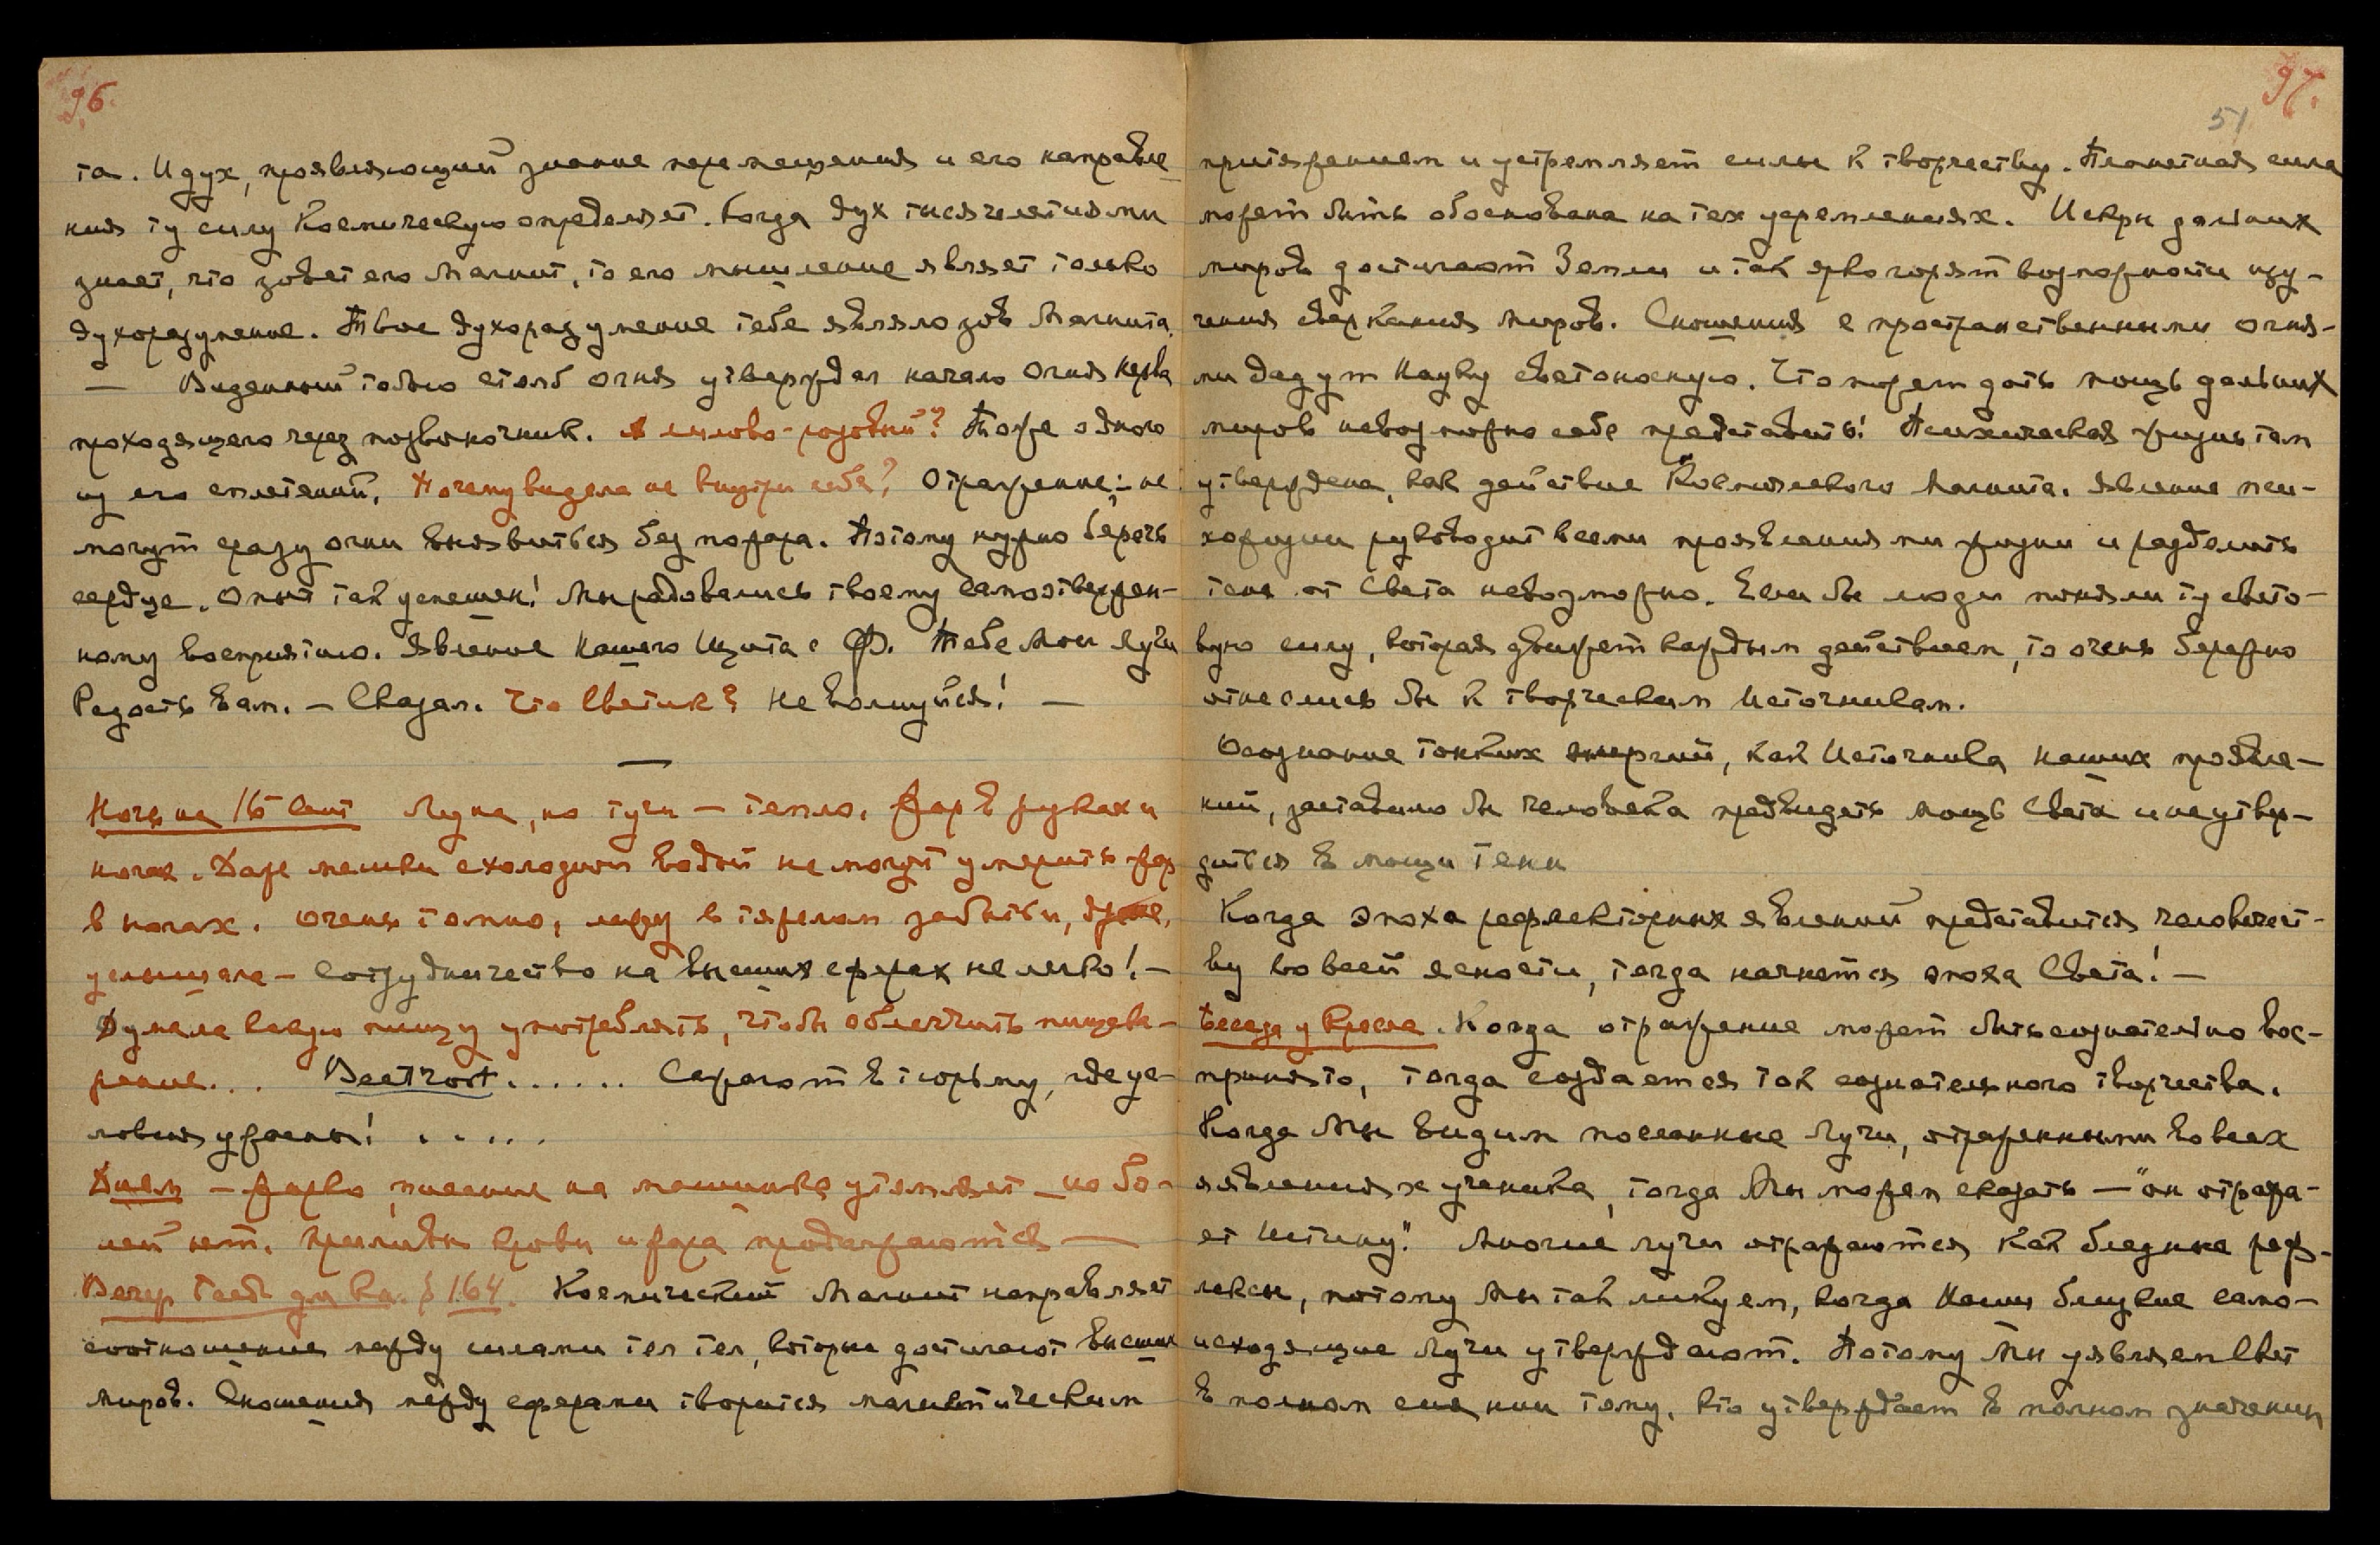 96.
та. И дух, проявляющий знание перемещения и его направле-
ния ту силу Космическую определяет. Когда дух тысячелетиями
знает, что зовет его Магнит, то его мышление являет только
духоразумение. Твое духоразумение тебе являло зов Магнита.
— Виденный тобою столб огня утверждал начало Огня нерва
проходящего через позвоночник. А лилово-розовый? Тоже одного
из его сплетений. Почему видела не внутри себя? Отражение; – не
могут сразу огни выявиться без пожара. Потому нужно беречь
сердце. Опыт так успешен! Мы радовались твоему самоотвержен-
ному восприятию. Явление Нашего Щита с Ф. Тебе Мои Лучи
Радость вам. – Сказал. Что Светик? Не волнуйся! —
—
Ночь на 16 сент Луна, но тучи – тепло. Жар в руках и
ногах. Даже мешки с холодной водой не могут умерить жар
в ногах. Очень томно, лежу в тяжелом забытьи,
услышала – Сотрудничество на высших сферах не легко! –
Думала какую пищу употреблять, чтобы облегчить пищева-
рение... Beetroot...... Сажают в тюрьму, где ус-
ловия ужасны! .....
Днем – жарко, писание на машинке утомляет – но бо-
лей нет. Приливы крови и жара продолжаются —
Вечер Бесед для кн. § 164. Космический Магнит направляет
соотношения между силами тех тел, которые достигают высших
миров. Сношения между сферами творится магнетическим
97.
51
притяжением и устремляет силы к творчеству. Планетная сила
может быть обоснована на тех устремлениях. Искры дальних
миров достигают Земли и так ярко горят возможности изу-
чения сверкания миров. Сношения с пространственными огня-
ми дадут Науку светоносную. Что может дать мощь дальних
миров невозможно себе представить! Психическая жизнь там
утверждена, как действие Космического Магнита. Явление пси-
хожизни руководит всеми проявлениями жизни и разделить
тени от Света невозможно. Если бы люди поняли ту свето-
вую силу, которая движет каждым действием, то очень бережно
отнеслись бы к творческим Источникам.
Осознание тонких энергий, как Источника наших проявле-
ний, заставило бы человека предвидеть мощь Света и не утвер-
диться в мощи тени
Когда эпоха рефлекторных явлений представится человечест-
ву во всей ясности, тогда начнется эпоха Света! –
Беседа у Кресла. Когда отражение может быть сознательно вос-
принято, тогда создается ток сознательного творчества.
Когда Мы видим посланные Лучи, отраженными во всех
явлениях ученика, тогда Мы можем сказать – "он отража-
ет Истину". Многие лучи отражаются как бледные реф-
лексы, потому Мы так ликуем, когда Наши близкие само-
исходящие Лучи утверждают. Потому Мы уявляем Свет
в полном тому, кто утверждает в полном значении